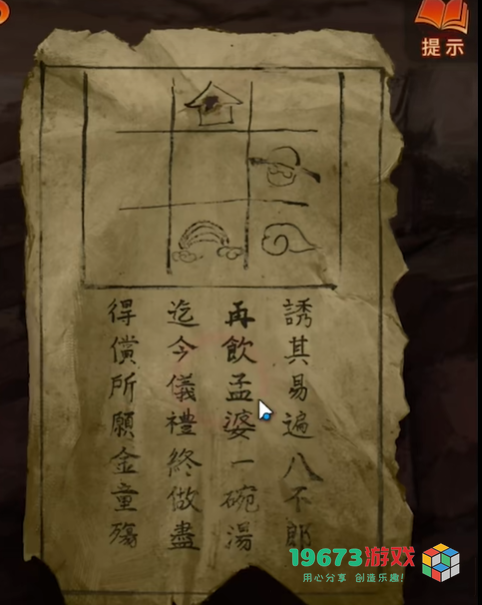 提示
誘其易遍八不郎
再飲孟婆一碗湯
迄今儀禮終做盡
得償所願金童殤
19673游戏
用心分享 创造乐趣!